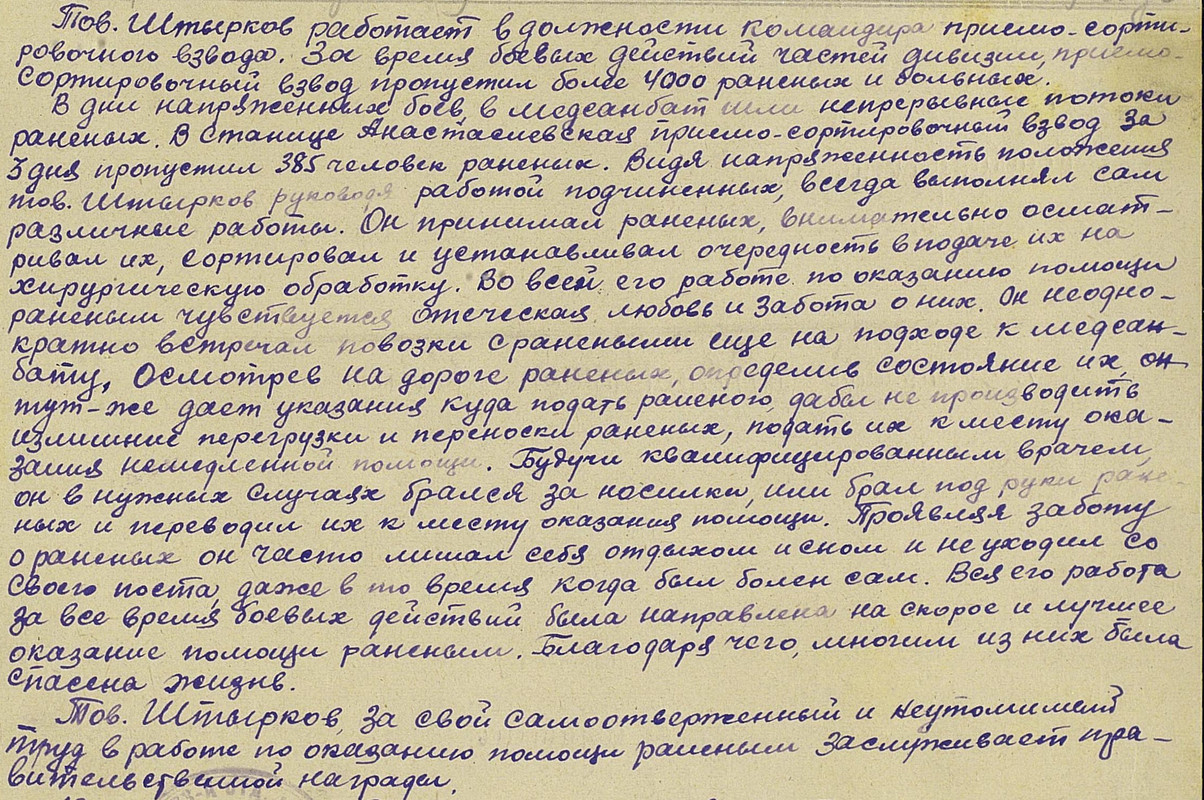 Тов. Штырков работает в должности командира приемо-сорти-
ровочного взвода. За время боевых действий частей дивизии, приемо-
сортировочный взвод пропустил более 4000 раненых и больных.
В дни напряженных боев, в медсанбат шли непрерывные потоки
раненых. В станице Анастасиевская приемо-сортировочный взвод за
3 дня пропустил 385 человек раненых. Видя напряженность положения
тов. Штырков руководя работой подчиненных, всегда выполнял сам
различные работы. Он принимал раненых, внимательно осмат-
ривал их, сортировал и устанавливал очередность в подаче их на
хирургическую обработку. Во всей его работе по оказанию помощи
раненым чувствуется отеческая любовь и забота о них. Он неодно-
кратно встречал повозки с ранеными еще на подходе к медсан-
бату. Осмотрев на дороге раненых, определив состояние их, он
тут-же дает указания куда подать раненого, дабы не производить
излишние перегрузки и переноски раненых, подать их к месту ока-
зания немедленной помощи. Будучи квалифицированным врачем,
он в нужных случаях брался за носилки, или брал под руки ране-
ных и переводил их к месту оказания помощи. Проявляя заботу
о раненых он часто лишал себя отдыхом и сном и не уходил со
своего поста даже в то время когда был болен сам. Вся его работа
за все время боевых действий была направлена на скорое и лучшее
оказание помощи раненым. Благодаря чего, многим из них была
спасена жизнь.
Тов. Штырков, за свой самоотверженный и неутомимый
труд в работе по оказанию помощи раненым заслуживает пра-
вительственной награды.